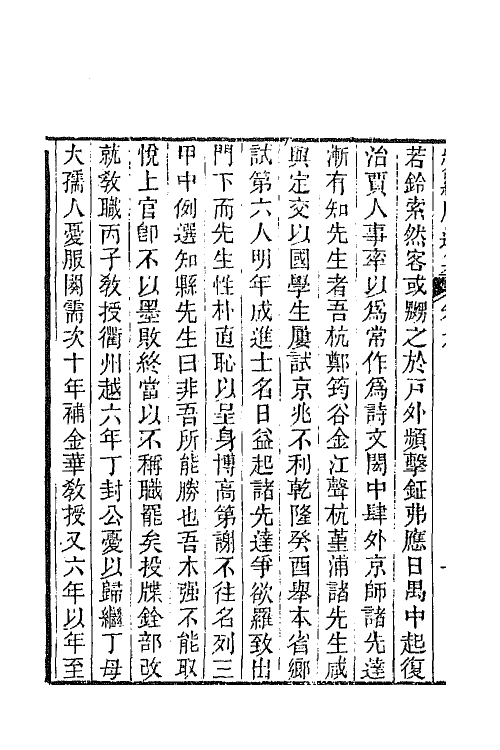 若鈴索然客或嬲之於戸外頻擊鉦弗應日禺中起復
治賈人事率以爲常作爲詩文閎中肆外京師諸先達
漸有知先生者吾杭鄭筠谷金江聲杭堇浦諸先生咸
與定交以國學生屢試京兆不利乾隆癸酉舉本省鄉
試第六人明年成進士名日益起諸先達爭欲羅致出
門下而先生性朴直恥以呈身博高第謝不往名列三
甲中例選知縣先生曰非吾所能勝也吾木强不能取
悅上官卽不以墨敗終當以不稱職罷矣投牒銓部改
就敎職丙子敎授衢州越六年丁封公憂以歸繼丁母
大孺人憂服闋需次十年補金華敎授又六年以年至